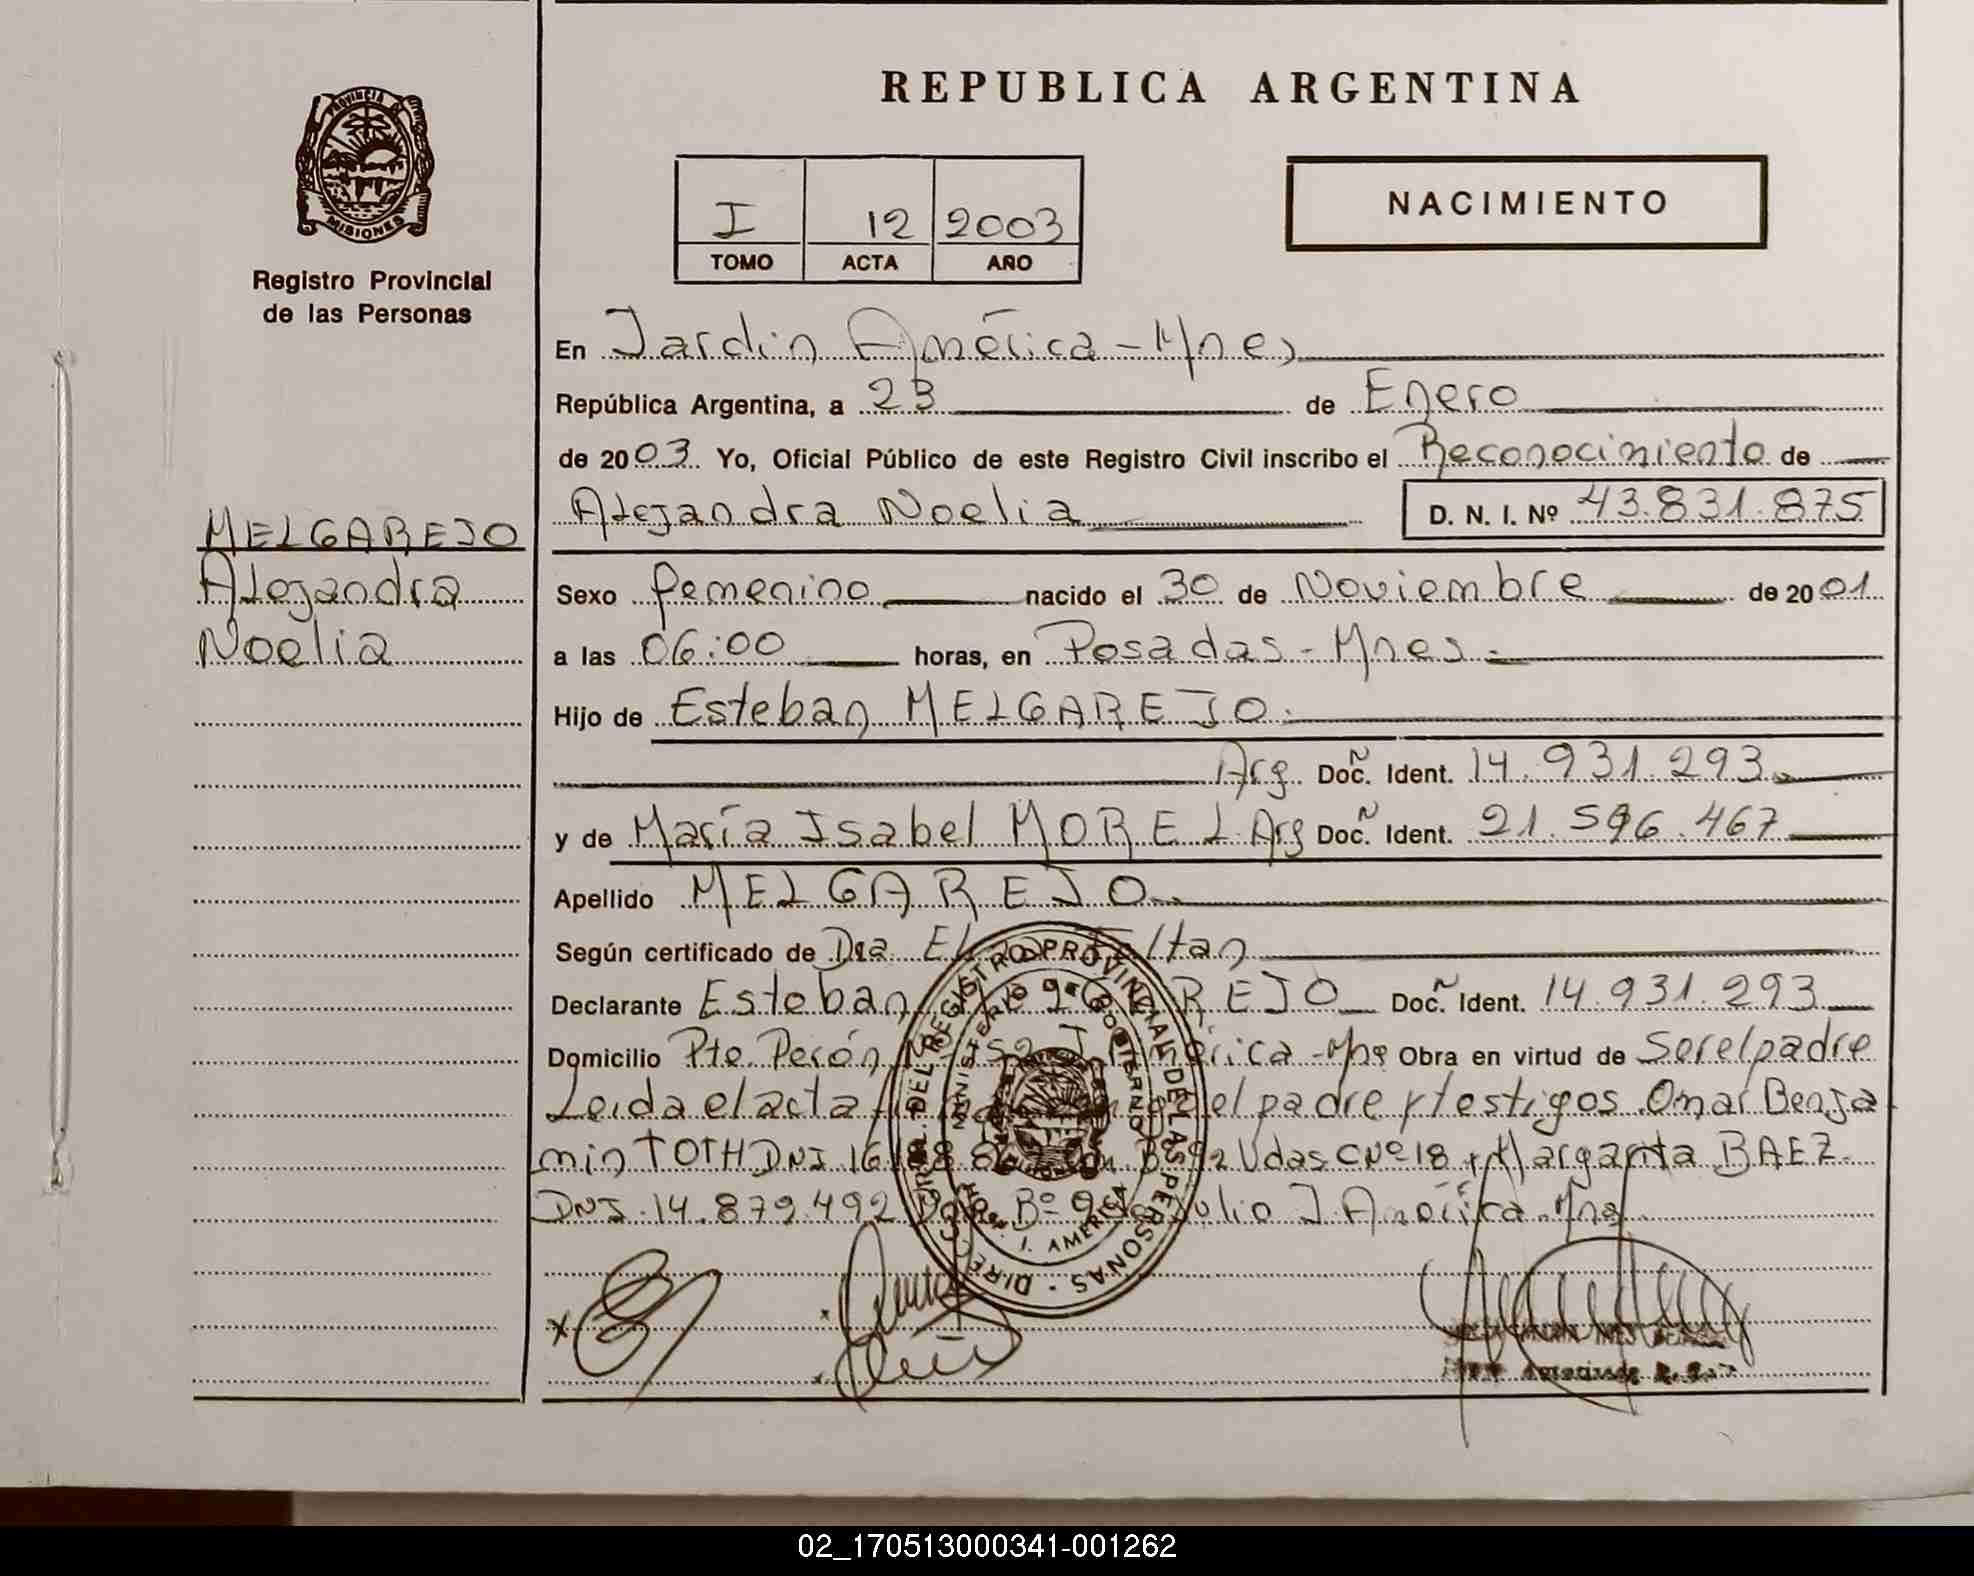 REPUBLICA ARGENTINA
PROVINCIA DE
MISIONES
Registro Provincial
de las Personas
I 12 2003
TOMO ACTA AÑO
NACIMIENTO
En Jardin América - Mnes
República Argentina, a 23 de Enero
de 2003 Yo, Oficial Público de este Registro Civil inscribo el Reconocimiento de
Alejandra Noelia D. N. I. Nº 43.831.875
MELGAREJO
Alejandra
Noelia
Sexo femenino nacido el 30 de Noviembre de 2001
a las 06:00 horas, en Posadas - Mnes.
Hijo de Esteban MELGAREJO.
Arg. Docñ. Ident. 14.931.293
y de María Isabel MOREL Arg Docñ. Ident. 21.596.467
Apellido MELGAREJO
Según certificado de Dra. Feltan
Declarante Esteban REJO Docñ. Ident. 14.931.293
Domicilio Pte. Perón Mne Obra en virtud de Ser el padre
Leida el acta el padre y testigos Omar Benja
min TOTH DNI Vdas C Nº 18 y Margarita BAEZ
DNI 14.879.492 Bº 9 de Julio J. América. Mns
DIRE . PROV. DEL REGISTRO PROVINCIAL DE LAS PERSONAS
MINISTERIO DE GOBIERNO
J. AMERICA
02_170513000341-001262